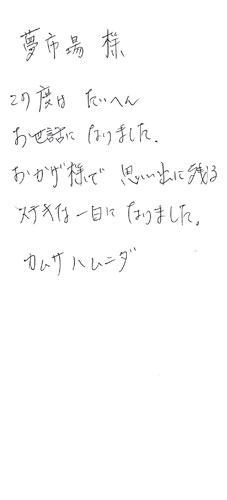 夢市場 様
この度は たいへん
お世話に なりました.
おかげ様で 思い出に残る
ステキな一日に なりました。
カムサハムニダ